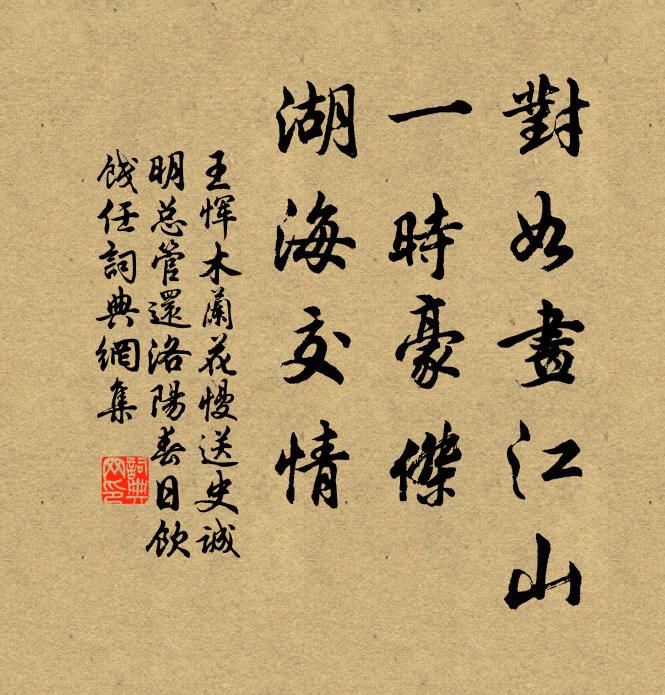 對如畫江山
一時豪傑
湖海交情
王惲木蘭花慢送史誠
明总管還洛陽春日飲
餞任詞典網集
詞典
网印